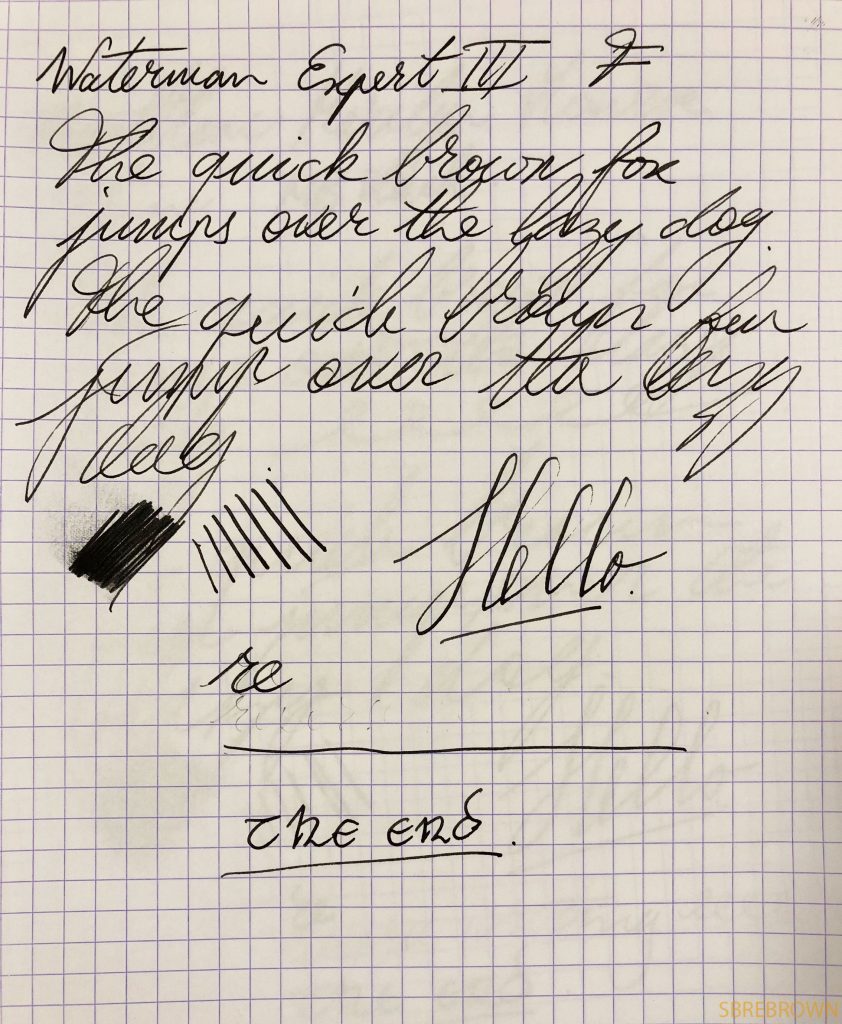 Waterman Expert III F
The quick brown fox
jumps over the lazy dog.
The quick brown fox
jumps over the lazy
dog
Hello.
re
The end.
SBREBROWN